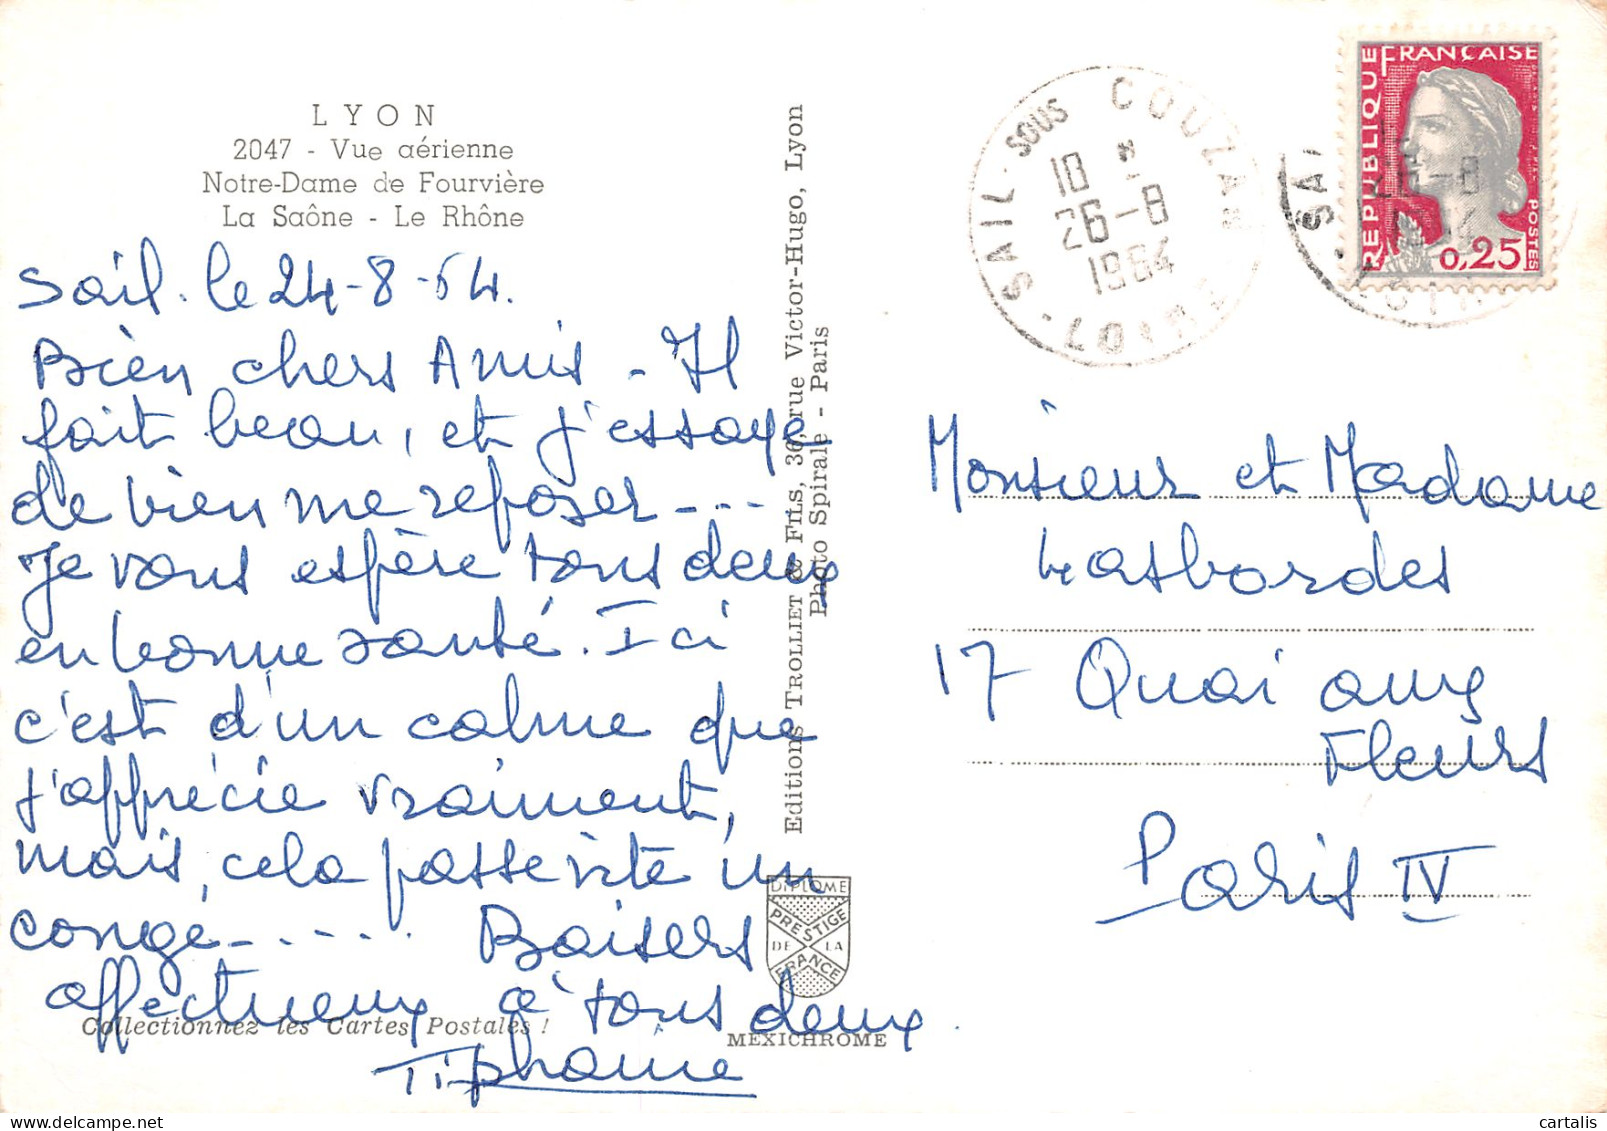 LYON
2047 - Vue aérienne
Notre-Dame de Fourvière
La Saône - Le Rhône
Sail. le 24-8-64.
Bien chers Amis - Il
fait beau, et j'essaye
de bien me reposer - - -
Je vous espère tous deux
en bonne santé. Ici
c'est d'un calme que
j'apprécie vraiment,
mais, cela passe vite un
congé - . - . . . Baisers
affectueux à tous deux.
Tiphanie
Collectionnez les Cartes Postales !
Editions TROLLIET & FILS, 36, rue Victor-Hugo, Lyon
Photo Spirale - Paris
DIPLOME
PRESTIGE
DE LA
FRANCE
MEXICHROME
SAIL-SOUS COUZAN
18
26-8
1964
LOIRE
REPUBLIQUE FRANÇAISE
POSTES
0,25
Monsieur et Madame
Lasbordes
17 Quai aux
Fleurs
Paris IV